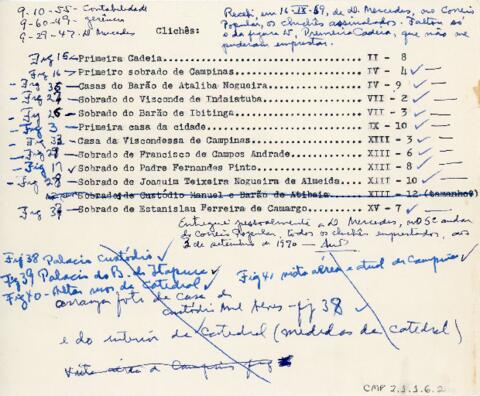 9-10-55- Contabilidade
9-60-49- gerência
9-29-47- D. Mercedes
Clichês:
Recebi em 16-IX-69, de D. Mercedes, no Correio
Popular, os clichês assinalados. Faltou só
o da figura 15, Primeira Cadeia, que não me
puderam emprestar.
Fig 15 Primeira Cadeia II - 8
Fig 16 Primeiro sobrado de Campinas IV - 4
Fig 35 Casas do Barão de Ataliba Nogueira IV - 9
Fig 24 Sobrado do Visconde de Indaiatuba VII - 2
Fig 26 Sobrado do Barão de Ibitinga VII - 3
Fig 3 Primeira casa da cidade IX - 10
Fig 33 Casa da Viscondessa de Campinas XIII - 3
Fig 29 Sobrado de Francisco de Campos Andrade XIII - 6
Fig 17 Sobrado do Padre Fernandes Pinto XIII - 8
Fig 28 Sobrado de Joaquim Teixeira Nogueira de Almeida XIII - 10
Sobrado de Custódio Manuel e Barão de Atibaia XIII - 12 (tamanhos)
Fig 34 Sobrado de Estanislau Ferreira de Camargo XV - 7
Entreguei pessoalmente a D. Mercedes, no 5º andar
do Correio Popular, todos os clichês emprestados, aos
2 de setembro de 1970
Fig 38 Palacio Custódio
Fig 39 Palacio do B. de Itapura
Fig 40 - Altar mor da Catedral
Fig 41 vista aérea e atual de Campinas
arranjar foto da casa de
Custódio Mel Alves - fig 38
e do interior da Catedral (medidas da Catedral)
Vista aérea de Campinas fig
CMP 2.1.1.6.2